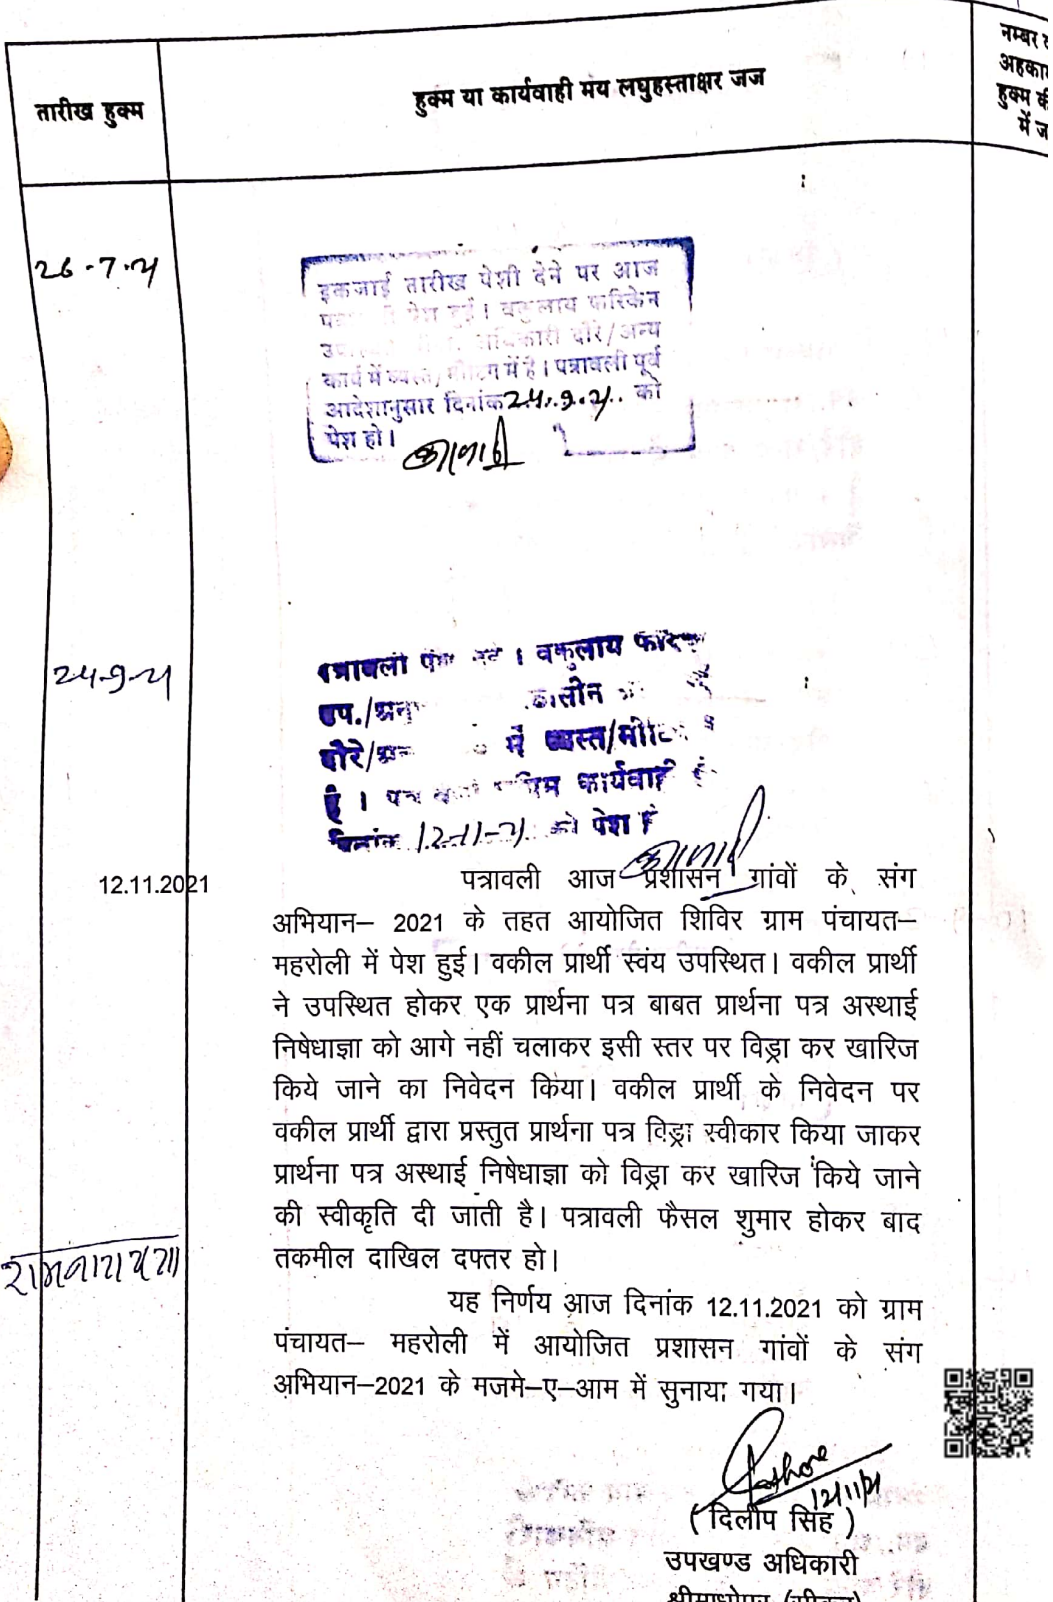 तारीख हुक्म
हुक्म या कार्यवाही मय लघुहस्ताक्षर जज
नम्बर
हुक्म
में
26-7-21
इकजाई तारीख पेशी देने पर आज
पेश हुई। वकुलाय फरिकेन
अधिकारी दौरे/अन्य
कार्य में व्यस्त/मीटिंग में है। पत्रावली पूर्व
आदेशानुसार दिनांक 24.9.21 को
पेश हो।
24-9-21
पत्रावली पेश । वकुलाय
उप./
दौरे/ में व्यस्त/मीटिंग
है। कार्यवाही
दिनांक 12-11-21 को पेश
12.11.2021
पत्रावली आज प्रशासन गांवों के संग
अभियान– 2021 के तहत आयोजित शिविर ग्राम पंचायत–
महरोली में पेश हुई। वकील प्रार्थी स्वंय उपस्थित। वकील प्रार्थी
ने उपस्थित होकर एक प्रार्थना पत्र बाबत प्रार्थना पत्र अस्थाई
निषेधाज्ञा को आगे नहीं चलाकर इसी स्तर पर विड्रा कर खारिज
किये जाने का निवेदन किया। वकील प्रार्थी के निवेदन पर
वकील प्रार्थी द्वारा प्रस्तुत प्रार्थना पत्र विड्रा स्वीकार किया जाकर
प्रार्थना पत्र अस्थाई निषेधाज्ञा को विड्रा कर खारिज किये जाने
की स्वीकृति दी जाती है। पत्रावली फैसल शुमार होकर बाद
तकमील दाखिल दफ्तर हो।
रामनारायण
यह निर्णय आज दिनांक 12.11.2021 को ग्राम
पंचायत– महरोली में आयोजित प्रशासन गांवों के संग
अभियान–2021 के मजमे–ए–आम में सुनाया गया।
12/11/21
( दिलीप सिंह )
उपखण्ड अधिकारी